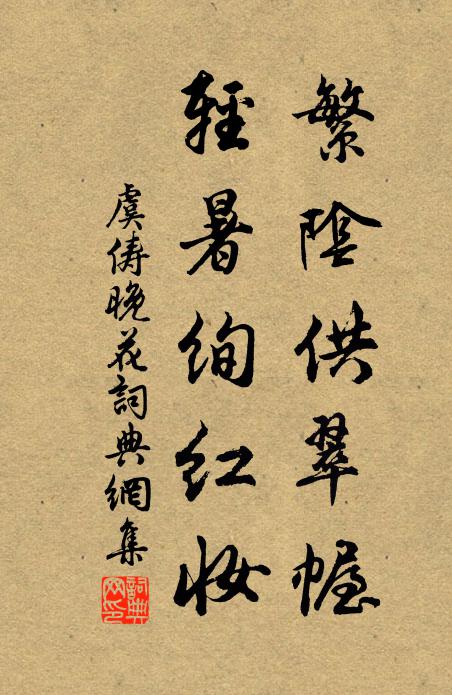 繁陰供翠幄
輕暑絢紅妝
虞儔晚花詞典網集
詞典網印